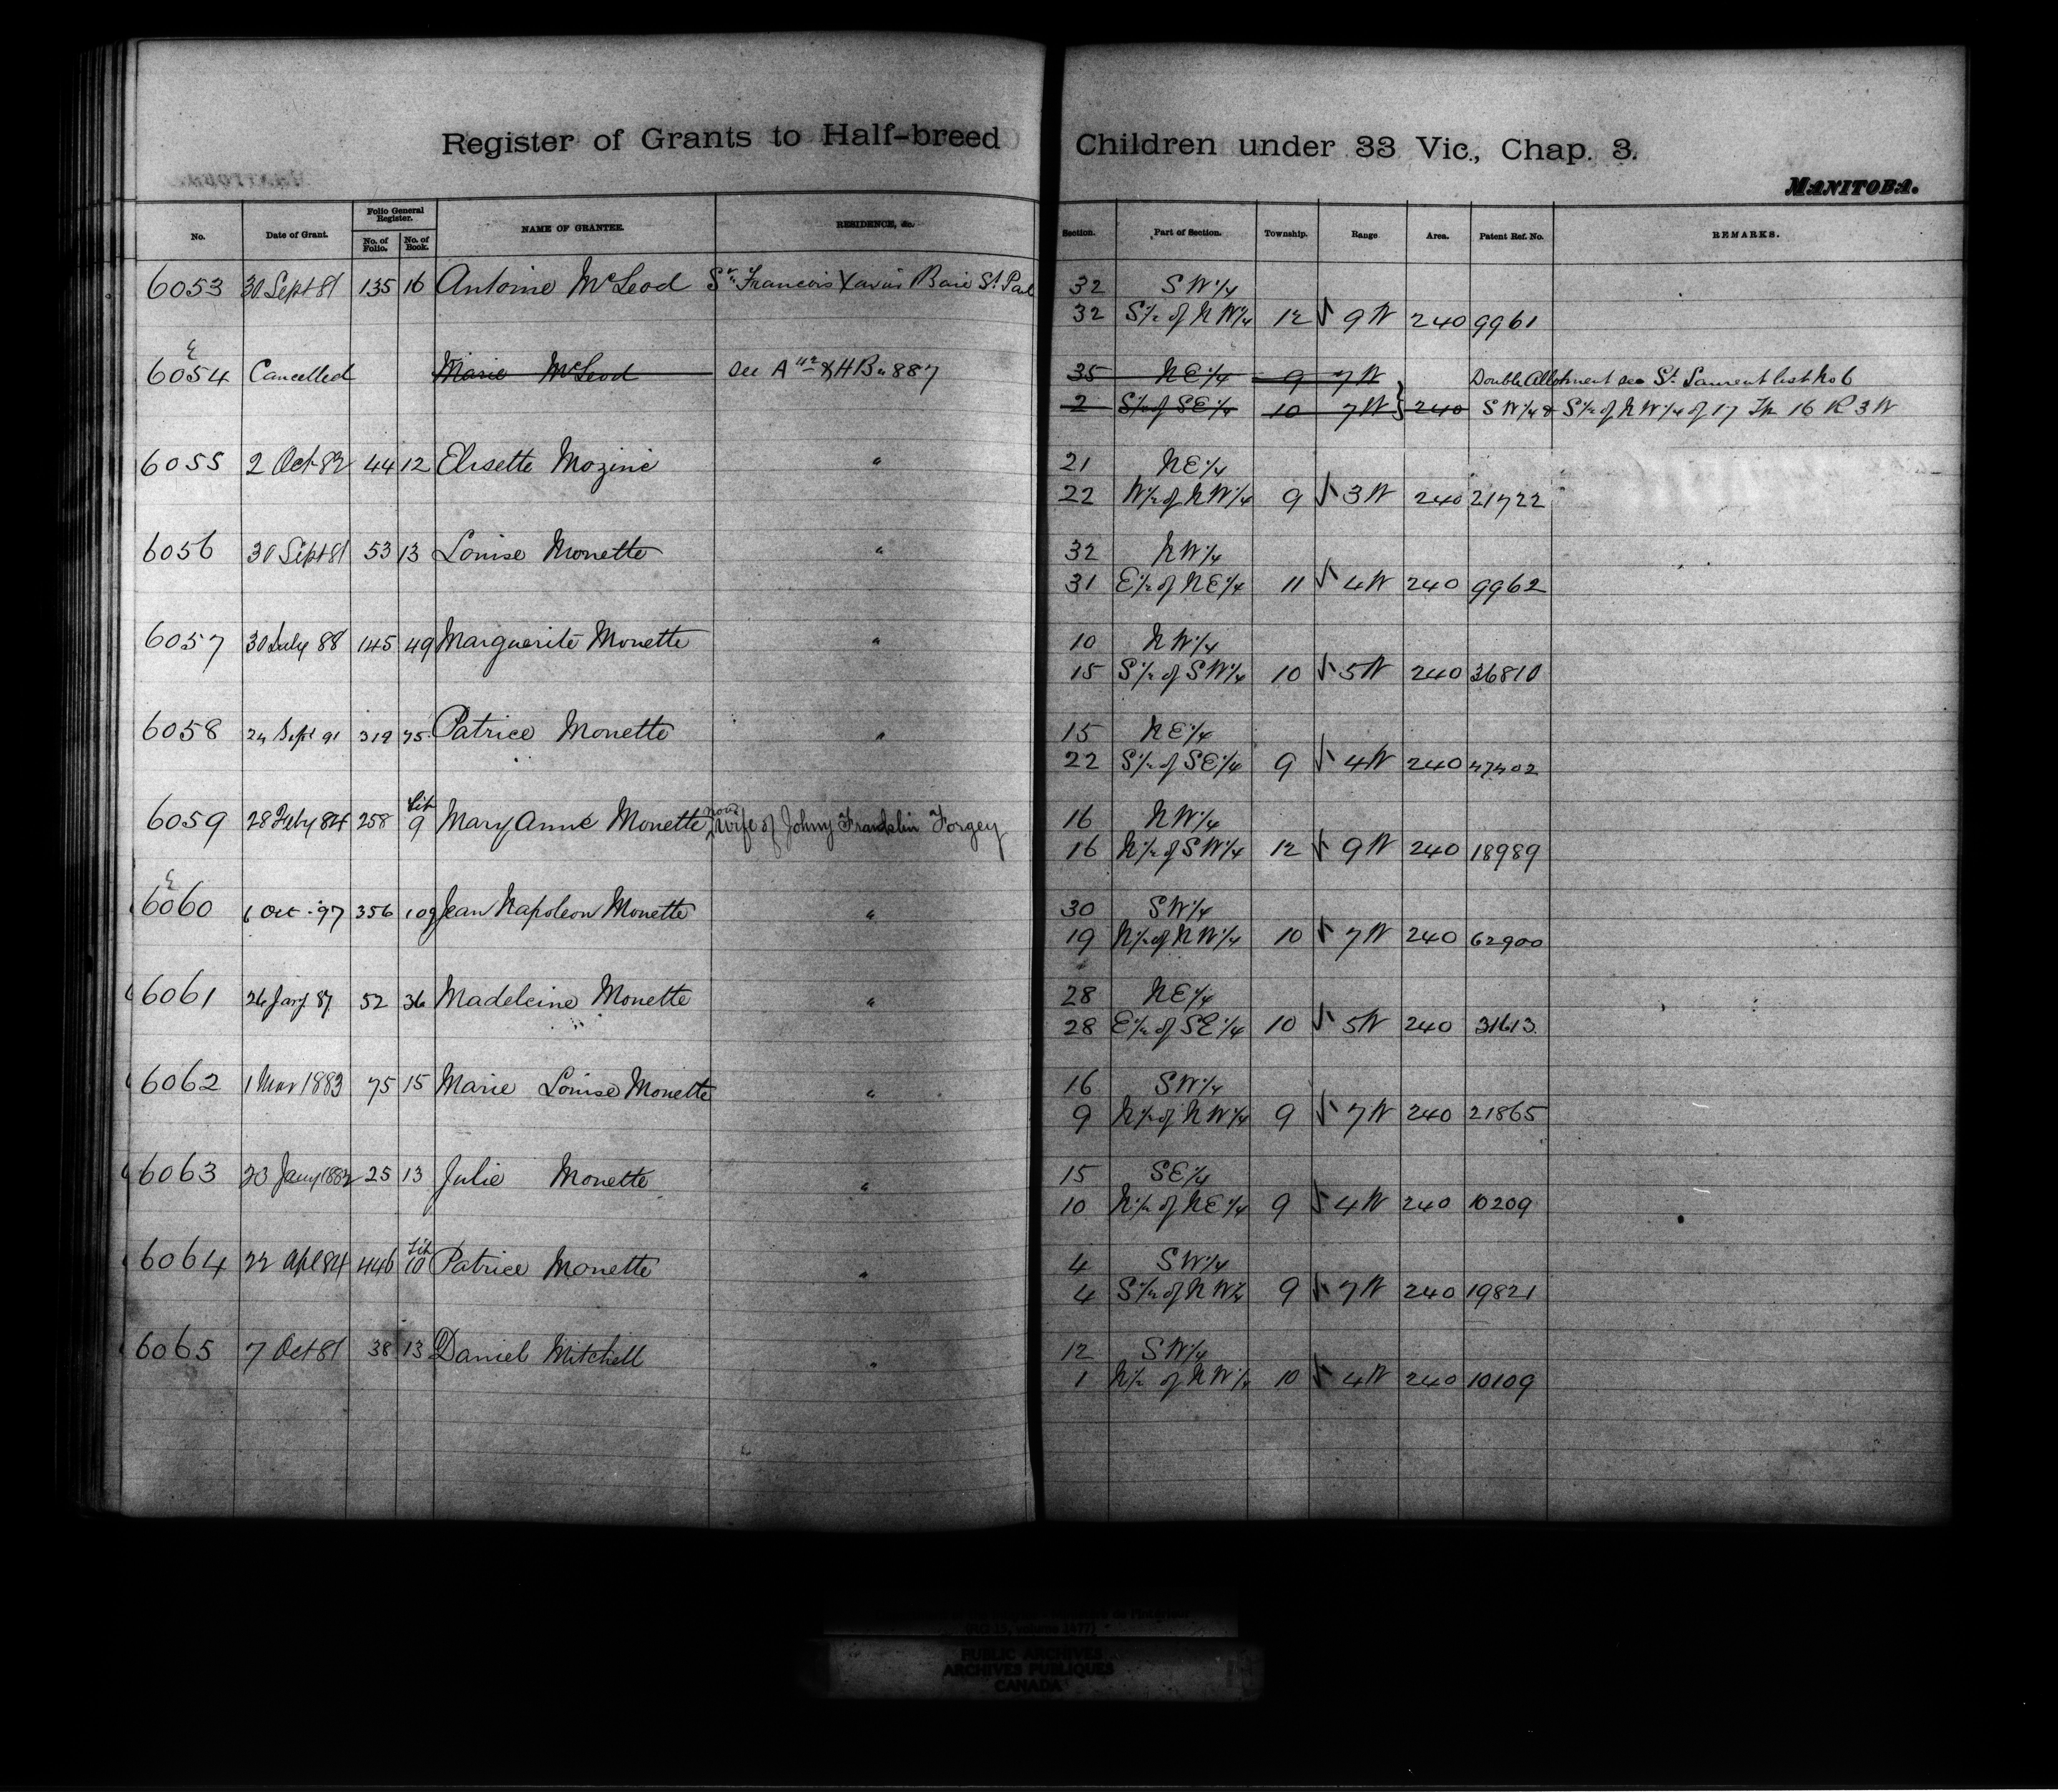 Register of Grants to Half-breed Children under 33 Vic., Chap. 3.
MANITOBA.
No. Date of Grant. Folio General Register. No. of Folio. No. of Book. NAME OF GRANTEE. RESIDENCE, &c. Section. Part of Section. Township. Range Area. Patent Ref. No. REMARKS.
6053 30 Sept 81 135 16 Antoine McLeod St Francois Xavier Baie St Paul 32 SW 1/4
32 S 1/2 of NW 1/4 12 9W 240 9961
6054 Cancelled Marie McLeod see HB 887 35 NE 1/4 9 7W Double Allotment see St Laurent list No 6
2 S 1/2 of SE 1/4 10 7W 240 SW 1/4 & S 1/2 of NW 1/4 of 17 Tp 16 R 3 W
6055 2 Oct 82 44 12 Elisette Mozinie " 21 NE 1/4
22 W 1/2 of NW 1/4 9 3W 240 21722
6056 30 Sept 81 53 13 Louise Monette " 32 NW 1/4
31 E 1/2 of NE 1/4 11 4W 240 9962
6057 30 July 88 145 49 Marguerite Monette " 10 NW 1/4
15 S 1/2 of SW 1/4 10 5W 240 36810
6058 Sept 91 319 75 Patrice Monette " 15 NE 1/4
22 S 1/2 of SE 1/4 9 4W 240 47402
6059 28 Feby 84 258 Lib 9 Mary Anne Monette now wife of Johny Franklin Forgey 16 NW 1/4
16 N 1/2 of SW 1/4 12 9W 240 18989
6060 6 Oct 97 356 109 Jean Napoleon Monette " 30 SW 1/4
19 N 1/2 of NW 1/4 10 7W 240 62900
6061 26 Jany 87 52 36 Madeleine Monette " 28 NE 1/4
28 E 1/2 of SE 1/4 10 5W 240 31613
6062 1 Mar 1883 75 15 Marie Louise Monette " 16 SW 1/4
9 N 1/2 of NW 1/4 9 7W 240 21865
6063 23 Jany 1882 25 13 Julie Monette " 15 SE 1/4
10 N 1/2 of NE 1/4 9 4W 240 10209
6064 22 Apl 84 446 Lib 10 Patrice Monette " 4 SW 1/4
4 S 1/2 of NW 1/4 9 7W 240 19821
6065 7 Oct 81 38 13 Daniel Mitchell " 12 SW 1/4
1 N 1/2 of NW 1/4 10 4W 240 10109
(RG 15, volume 1477)
PUBLIC ARCHIVES
ARCHIVES PUBLIQUES
CANADA